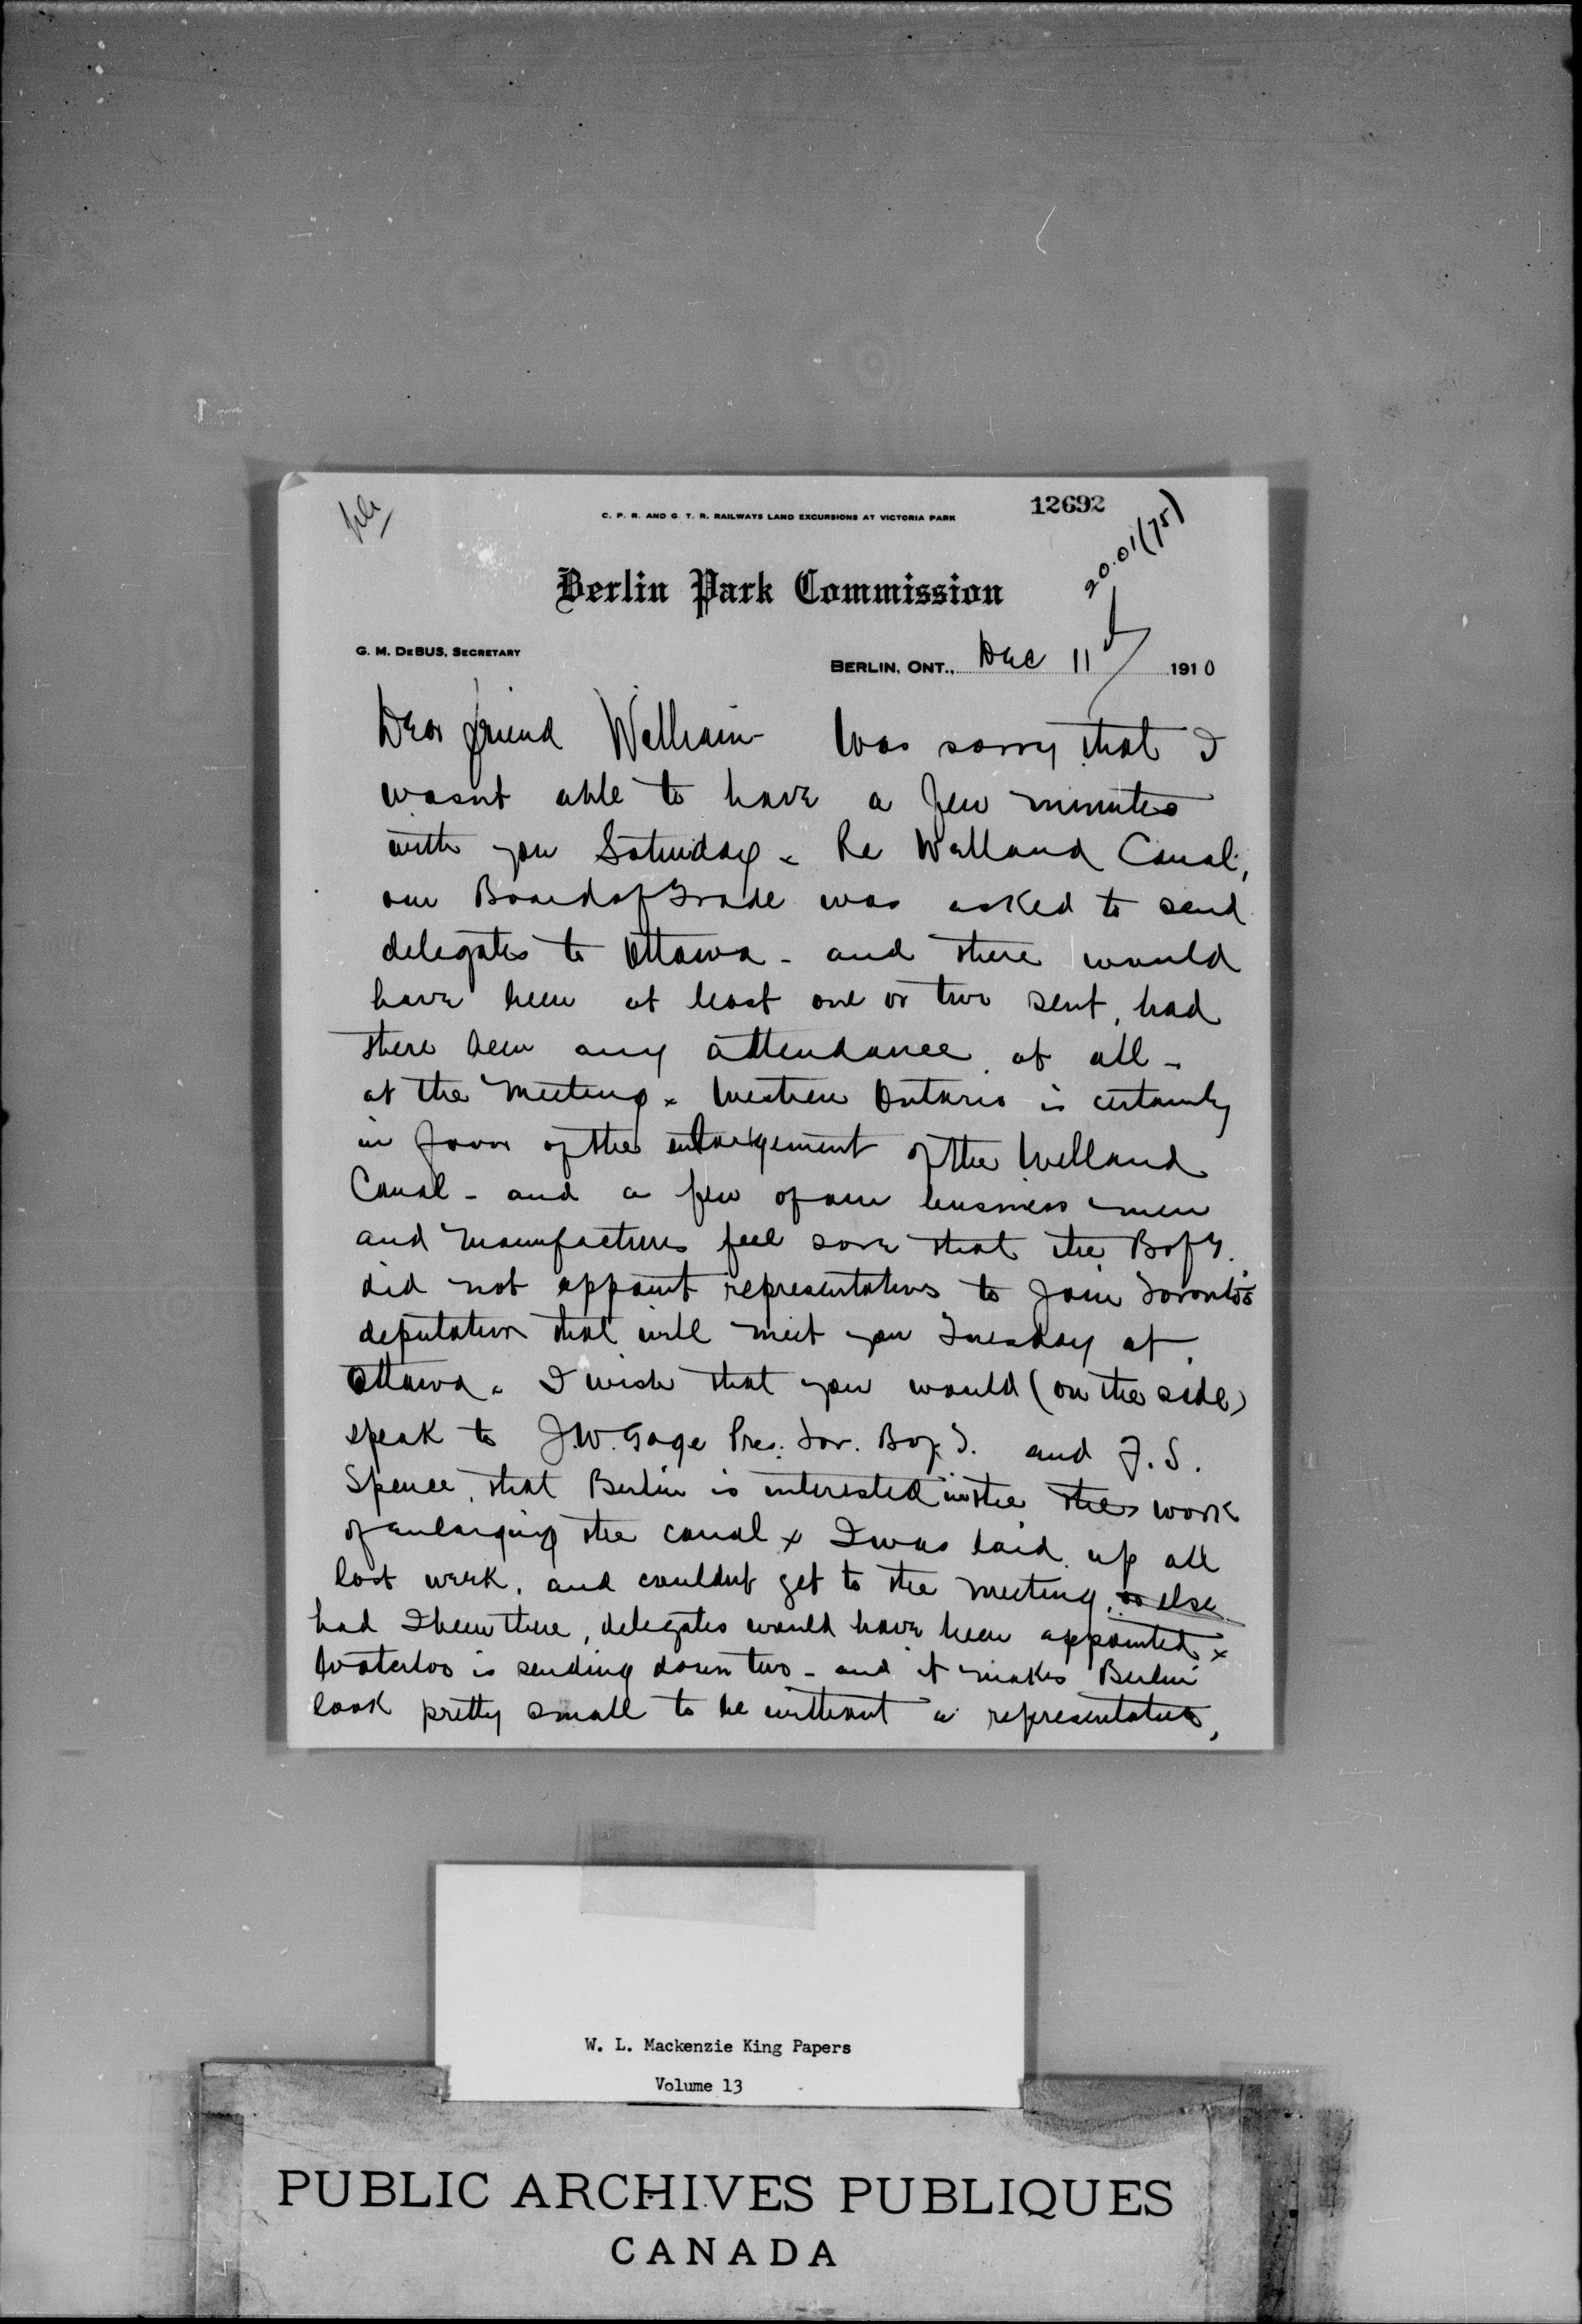 file
12692
C. P. R. AND G. T. R. RAILWAYS LAND EXCURSIONS AT VICTORIA PARK
20.01(75)
Berlin Park Commission
G. M. DEBUS, SECRETARY
BERLIN, ONT., Dec 11 1910
Dear friend William Was sorry that I
wasnt able to have a few minutes
with you Saturday - Re Welland Canal,
our Board of Trade was asked to send
delegates to Ottawa - and there would
have been at least one or two sent, had
there been any attendance at all -
at the meeting x Western Ontario is certainly
in favor of the enlargement of the Welland
Canal - and a few of our business men
and manufacturers feel sore that the B of T.
did not appoint representatives to join Toronto's
deputation that will meet you Tuesday at
Ottawa. I wish that you would (on the side)
speak to J.W. Gage Pres. Tor. B of T. and F. S.
Spence, that Berlin is interested in the the work
of enlarging the canal x I was laid up all
last week, and couldnt get to the meeting, or else
had I been there, delegates would have been appointed x
Waterloo is sending down two - and it makes Berlin
look pretty small to be without a representative,
W. L. Mackenzie King Papers
Volume 13
PUBLIC ARCHIVES PUBLIQUES
CANADA